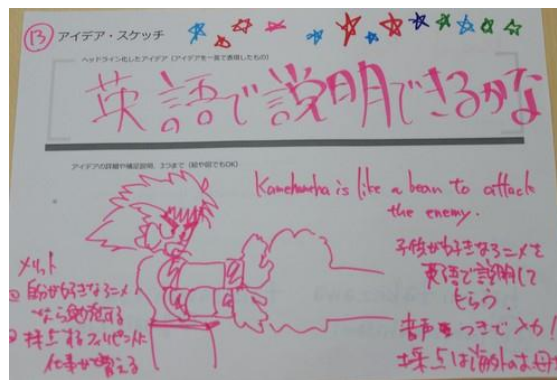 13 アイデア・スケッチ
ヘッドライン化したアイデア (アイデアを一言で表現したもの)
英語で説明できるかな
アイデアの詳細や補足説明、3つまで (絵や図でもOK)
Kamehameha is like a beam to attack
the enemy.
子供が好きなアニメを
英語で説明して
もらう。
音声つきで入力!
採点は海外の
メリット
① 自分が好きなアニメ
なら勉強する
② 採点するフィリピン人に
仕事が増える